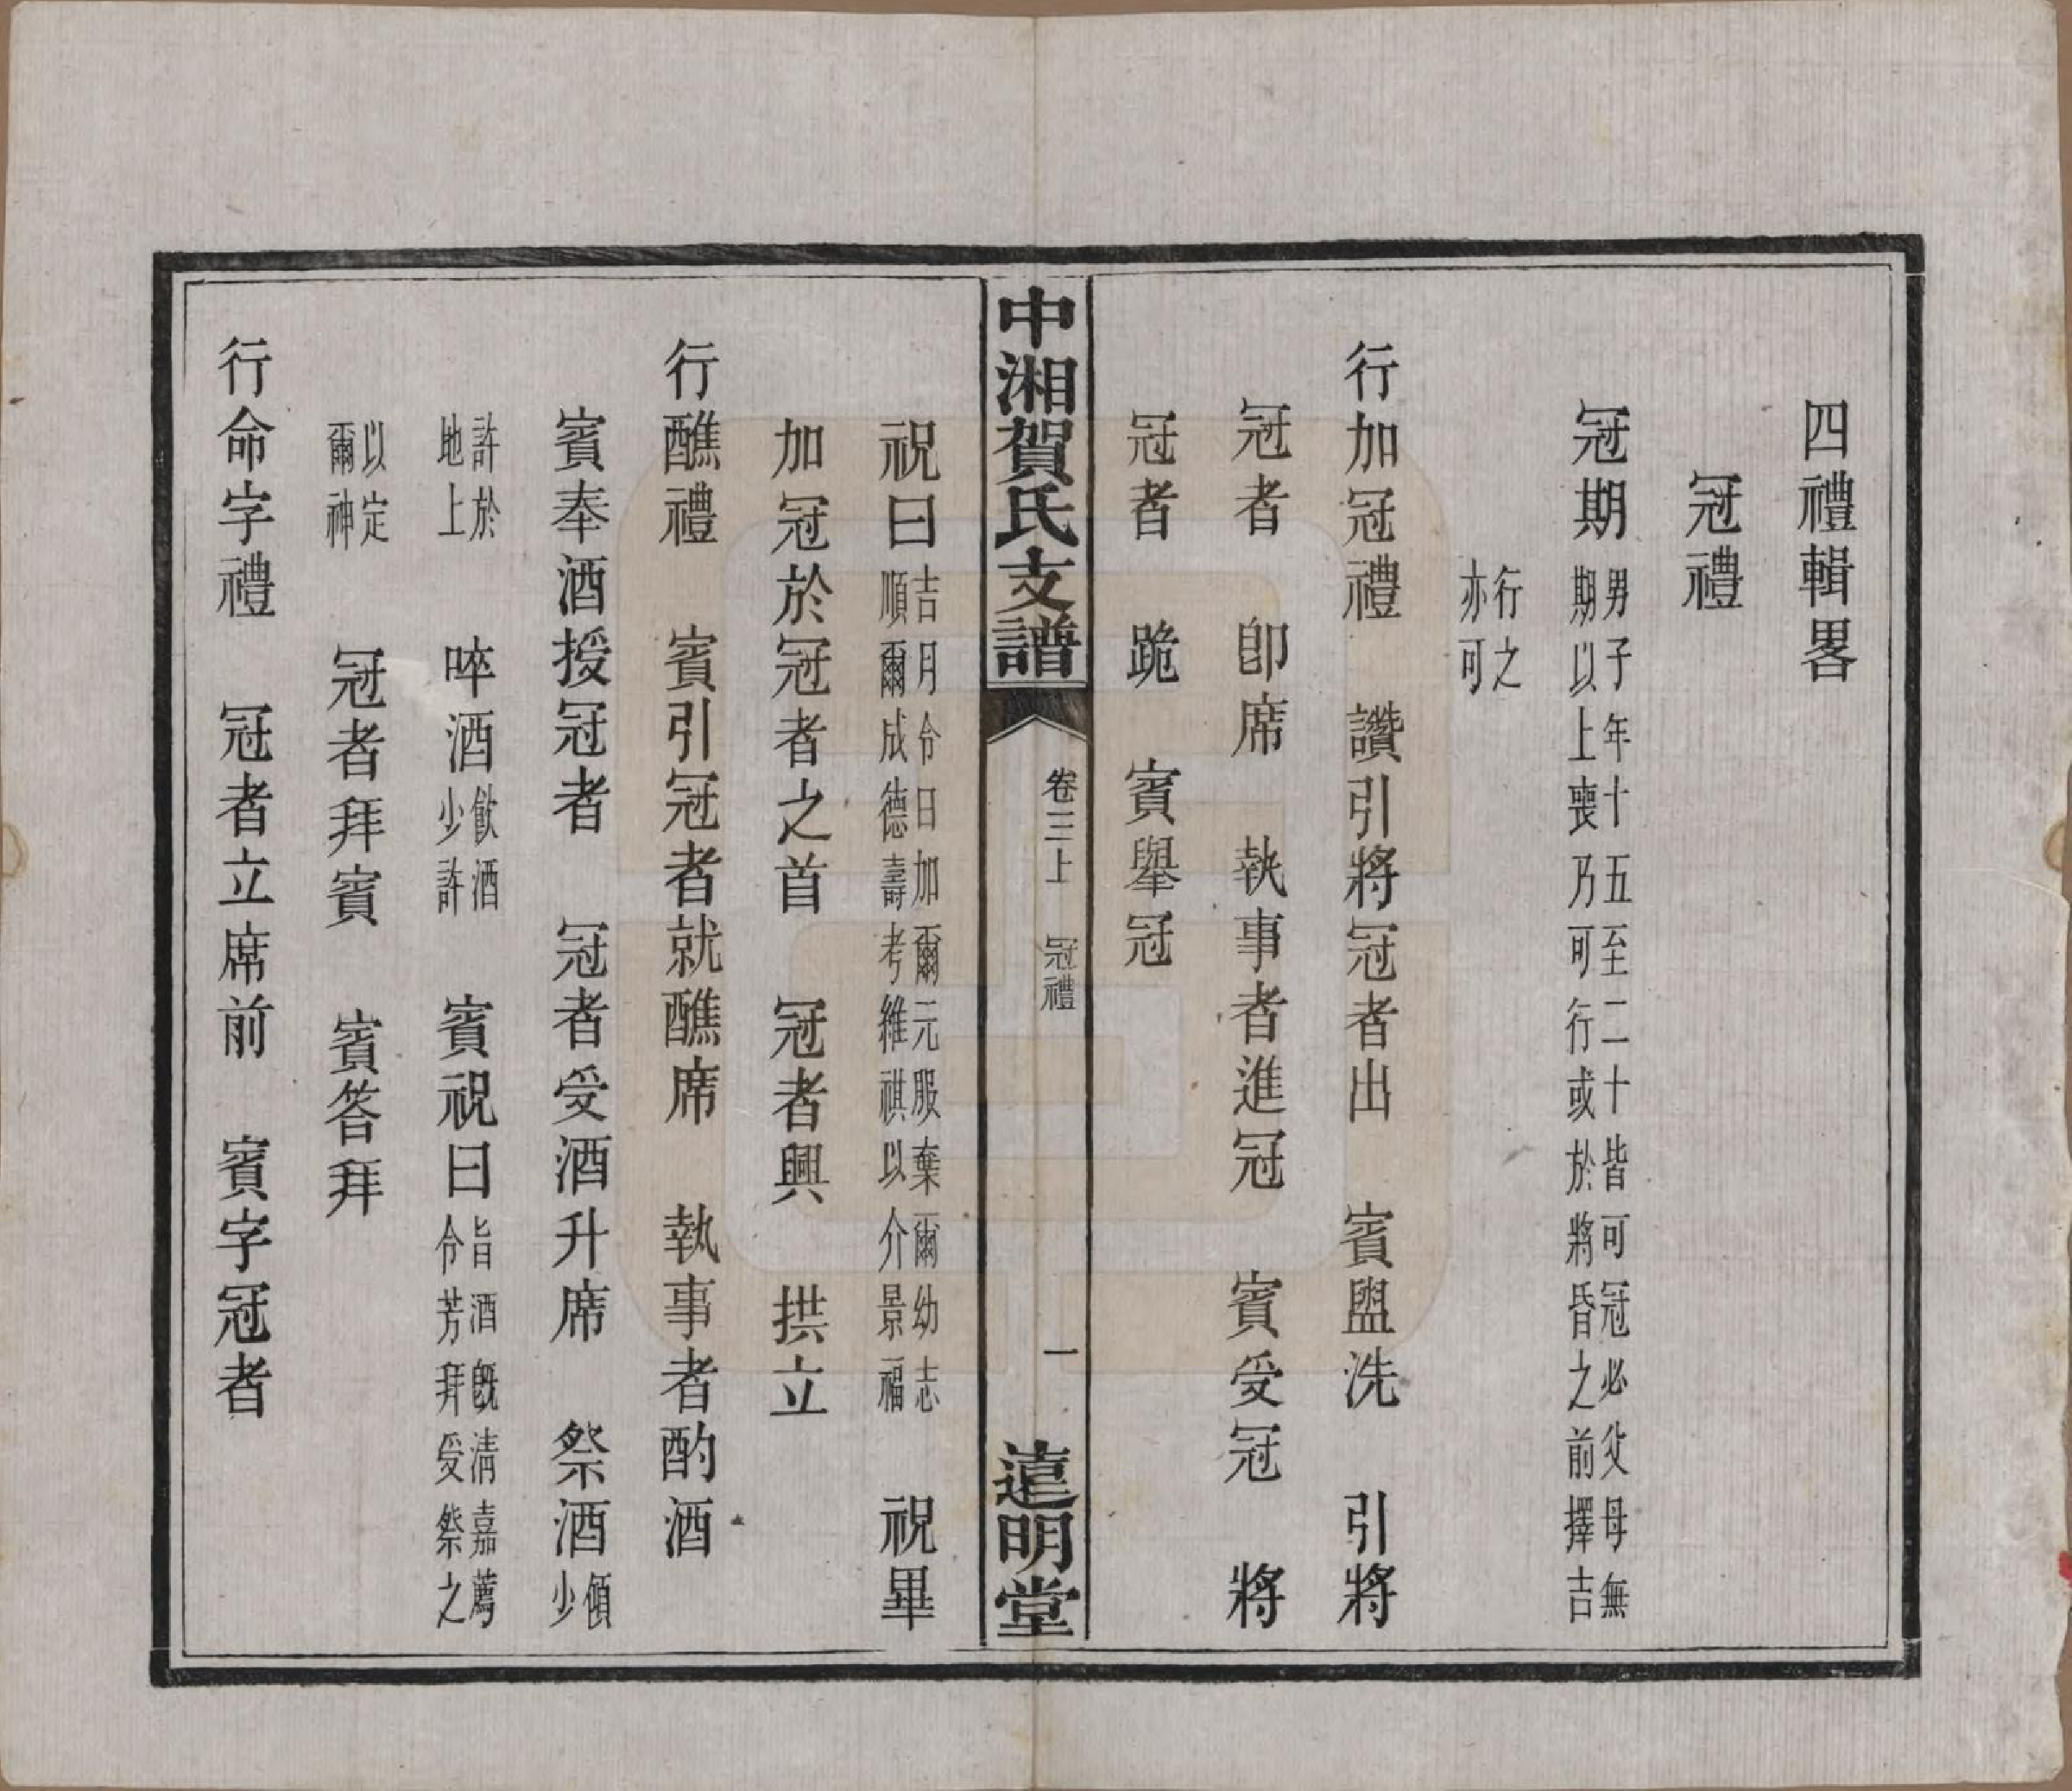 四禮輯畧
冠禮
冠期 男子年十五至二十皆可冠必父母無期以上喪乃可行或於將昏之前擇吉
行之亦可
行加冠禮 讚引將冠者出 賓盥洗 引將
冠者 卽席 執事者進冠 賓受冠 將
冠者 跪 賓舉冠
中湘賀氏支譜 卷三上 冠禮 一 遠明堂
祝曰 吉月令日加爾元服棄爾幼志順爾成德壽考維祺以介景福 祝畢
加冠於冠者之首 冠者興 拱立
行醮禮 賓引冠者就醮席 執事者酌酒
賓奉酒授冠者 冠者受酒升席 祭酒 傾少
許於地上 啐酒 飲酒少許 賓祝曰 旨酒旣淸嘉薦令芳拜受祭之
以定爾神 冠者拜賓 賓答拜
行命字禮 冠者立席前 賓字冠者